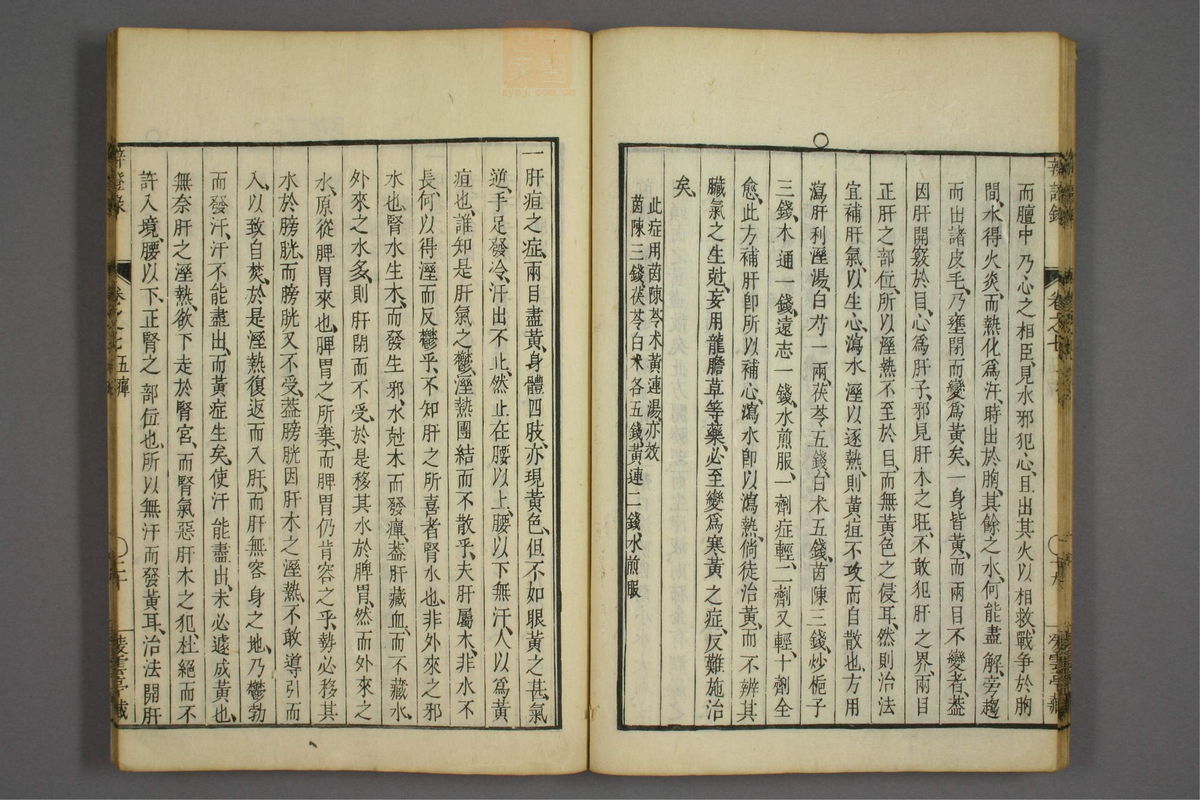 而膻中乃心之相臣見水邪犯心且出其火以相救戰爭於胸
間水得火炎而熱化爲汗時出於胸其餘之水何能盡解旁趨
而出諸皮毛乃壅閉而變爲黃矣一身皆黃而兩目不變者葢
因肝開竅於目心爲肝子邪見肝木之旺不敢犯肝之界兩目
正肝之部位所以溼熱不至於目而無黃色之侵耳然則治法
宜補肝氣以生心瀉水溼以逐熱則黃疸不攻而自散也方用
瀉肝利溼湯白芍一兩茯苓五錢白术五錢茵陳三錢炒梔子
三錢木通一錢遠志一錢水煎服一劑症輕二劑又輕十劑全
愈此方補肝卽所以補心瀉水卽以瀉熱倘徒治黃而不辨其
臟氣之生尅妄用龍膽草等藥必至變爲寒黃之症反難施治
矣
此症用茵陳苓术黃連湯亦效
茵陳三錢茯苓白术各五錢黃連二錢水煎服
一肝疸之症兩目盡黃身體四肢亦現黃色但不如眼黃之甚氣
逆手足發冷汗出不止然止在腰以上腰以下無汗人以爲黃
疸也誰知是肝氣之鬱溼熱團結而不散乎夫肝屬木非水不
長何以得溼而反鬱乎不知肝之所喜者腎水也非外來之邪
水也腎水生木而發生邪水尅木而發癉葢肝藏血而不藏水
外來之水多則肝閉而不受於是移其水於脾胃然而外來之
水原從脾胃來也脾胃之所棄而脾胃仍肯容之乎勢必移其
水於膀胱而膀胱又不受葢膀胱因肝木之溼熱不敢導引而
入以致自焚於是溼熱復返而入肝而肝無容身之地乃鬱勃
而發汗汗不能盡出而黃症生矣使汗能盡出未必遽成黃也
無奈肝之溼熱欲下走於腎宮而腎氣惡肝木之犯杜絕而不
許入境腰以下正腎之部位也所以無汗而發黃耳治法開肝
卷之七 五癉